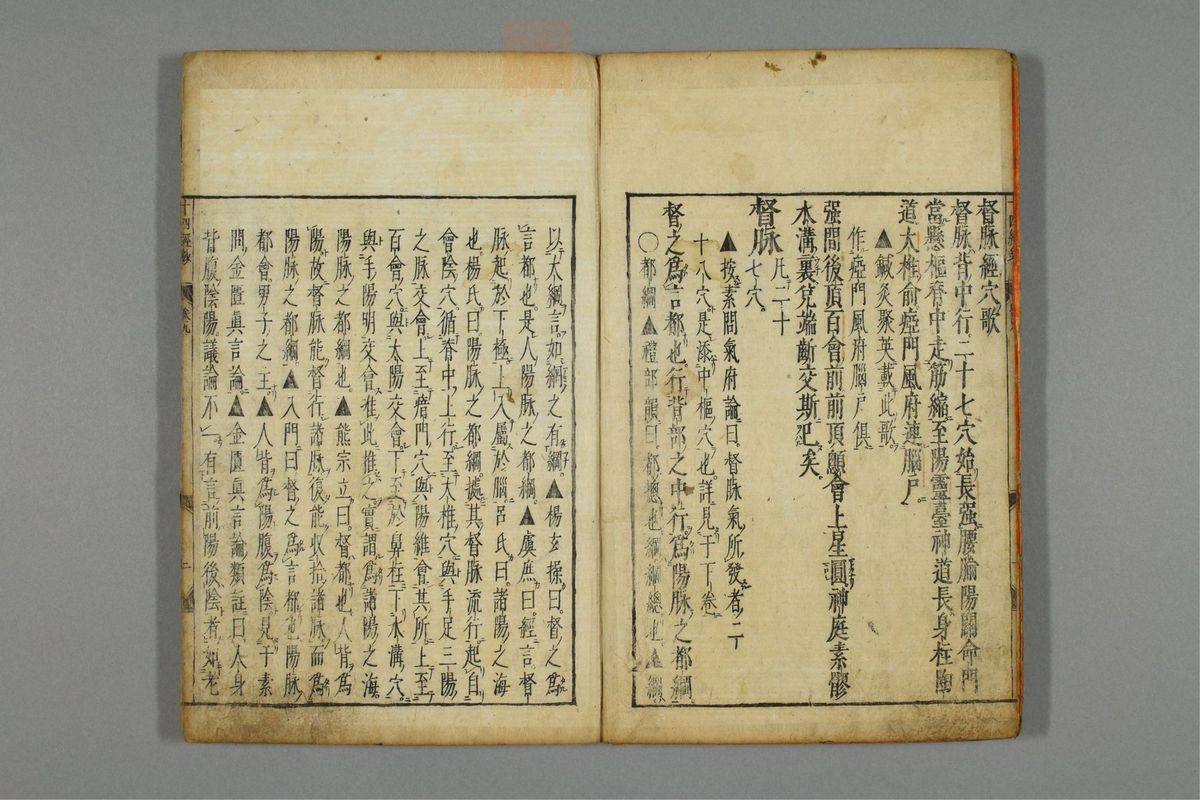 督脉經穴歌
督脉背中行二十七穴始長强腰腧陽關命門
當懸樞脊中走筋縮至陽靈臺神道長身柱陶
道大椎俞瘂門風府連腦戶
▲鍼灸聚英載此歌
作瘂門風府腦戶俱
强間後頂百會前前頂顖會上星圓神庭素髎
水溝裏兌端斷交斯已矣
督脉凡二十七穴
▲按素問氣府論曰督脉氣所發者二
十八穴是添中樞穴也詳見于下卷
督之爲言都也行背部之中行爲陽脉之都綱
○都綱▲禮部韻曰都總也綱綱總也▲綱
以大綱言如網之有綱▲楊玄操曰督之爲
言都也是人陽脉之都綱▲虞庶曰經言督
脉起於下極上入屬於腦呂氏曰諸陽之海
也楊氏曰陽脉之都綱據其督脉流行起自
會陰穴循脊中上行至大椎穴與手足三陽
之脉交會上至瘖門穴與陽維會其所上至
百會穴與太陽交會下至於鼻柱下水溝穴
與手陽明交會推此推之實謂爲諸陽之海
陽脉之都綱也▲熊宗立曰督都也人背爲
陽故督脉能督行諸脉復能收拾諸脉而爲
陽脉之都綱▲入門曰督之爲言都也陽脉
都會男子之主▲人背爲陽腹爲陰見于素
問金匱眞言論▲金匱眞言論類註曰人身
背腹陰陽議論不一有言前陽後陰者如老